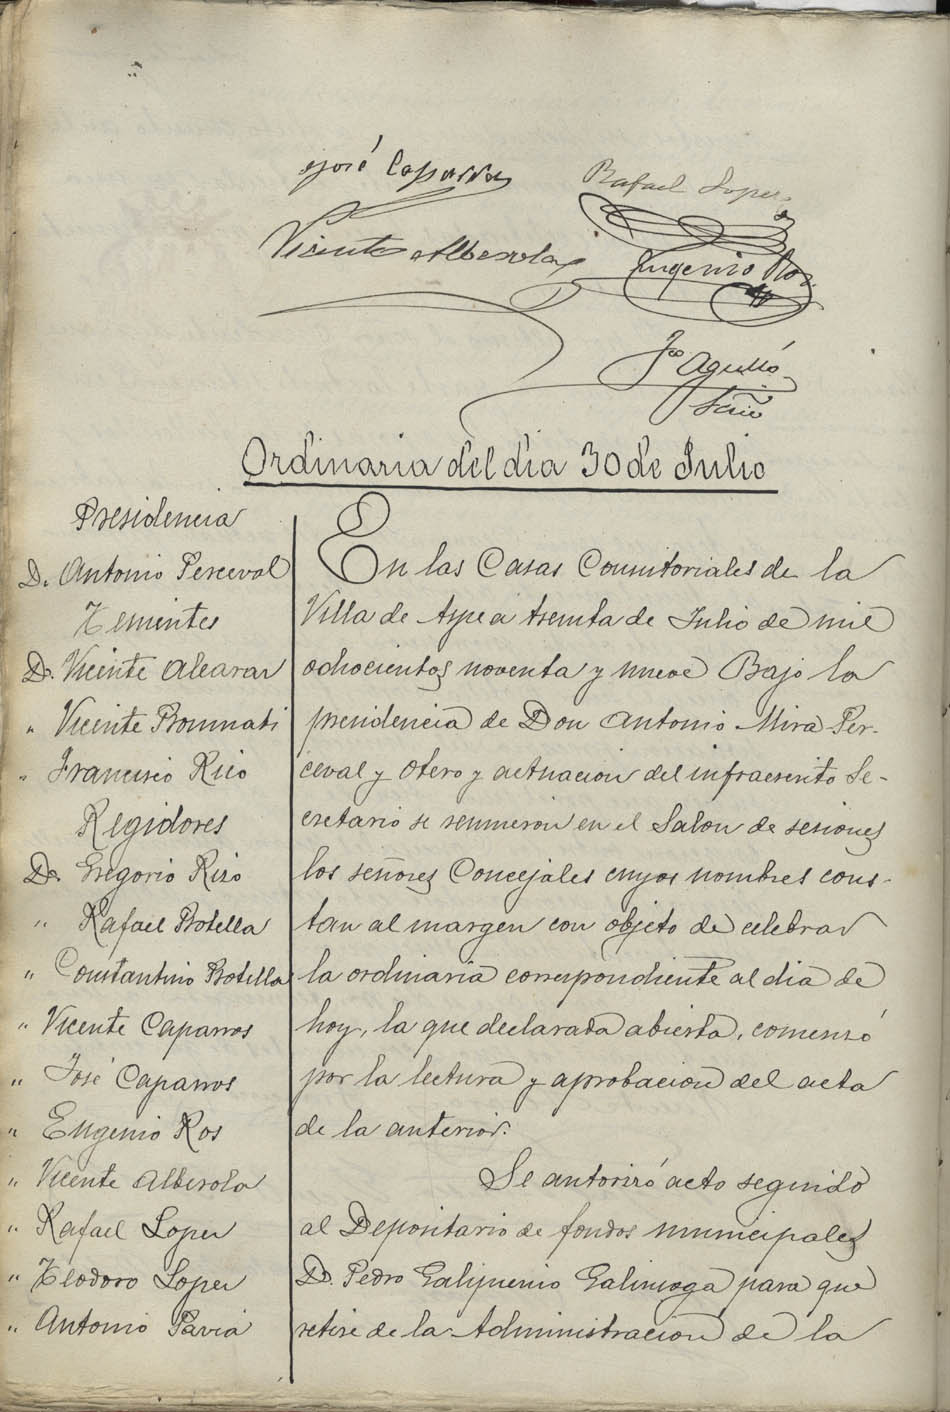 José Caparros
Rafael Lopez
Vicente Alberola
Eugenio Ros
Fco Agulló
Srio
Ordinaria del dia 30 de Julio
Presidencia
D. Antonio Perceval
Tenientes
D. Vicente Alcaraz
" Vicente Bonmati
" Francisco Rico
Regidores
D. Gregorio Rizo
" Rafael Botella
" Constantino Botella
" Vicente Caparros
" José Caparros
" Eugenio Ros
" Vicente Alberola
" Rafael Lopez
" Teodoro Lopez
" Antonio Pavia
En las Casas Consistoriales de la
Villa de Aspe a treinta de Julio de mil
ochocientos noventa y nueve Bajo la
presidencia de Don Antonio Mira Per-
ceval y Otero y actuacion del infraescrito Se-
cretario se reunieron en el Salon de sesiones
los señores Concejales cuyos nombres cons-
tan al margen con objeto de celebrar
la ordinaria correspondiente al dia de
hoy, la que declarada abierta, comenzó
por la lectura y aprobacion del acta
de la anterior.
Se autorizó acto seguido
al Depositario de fondos municipales
D. Pedro Galipienso Galinsoga para que
retire de la Administracion de la